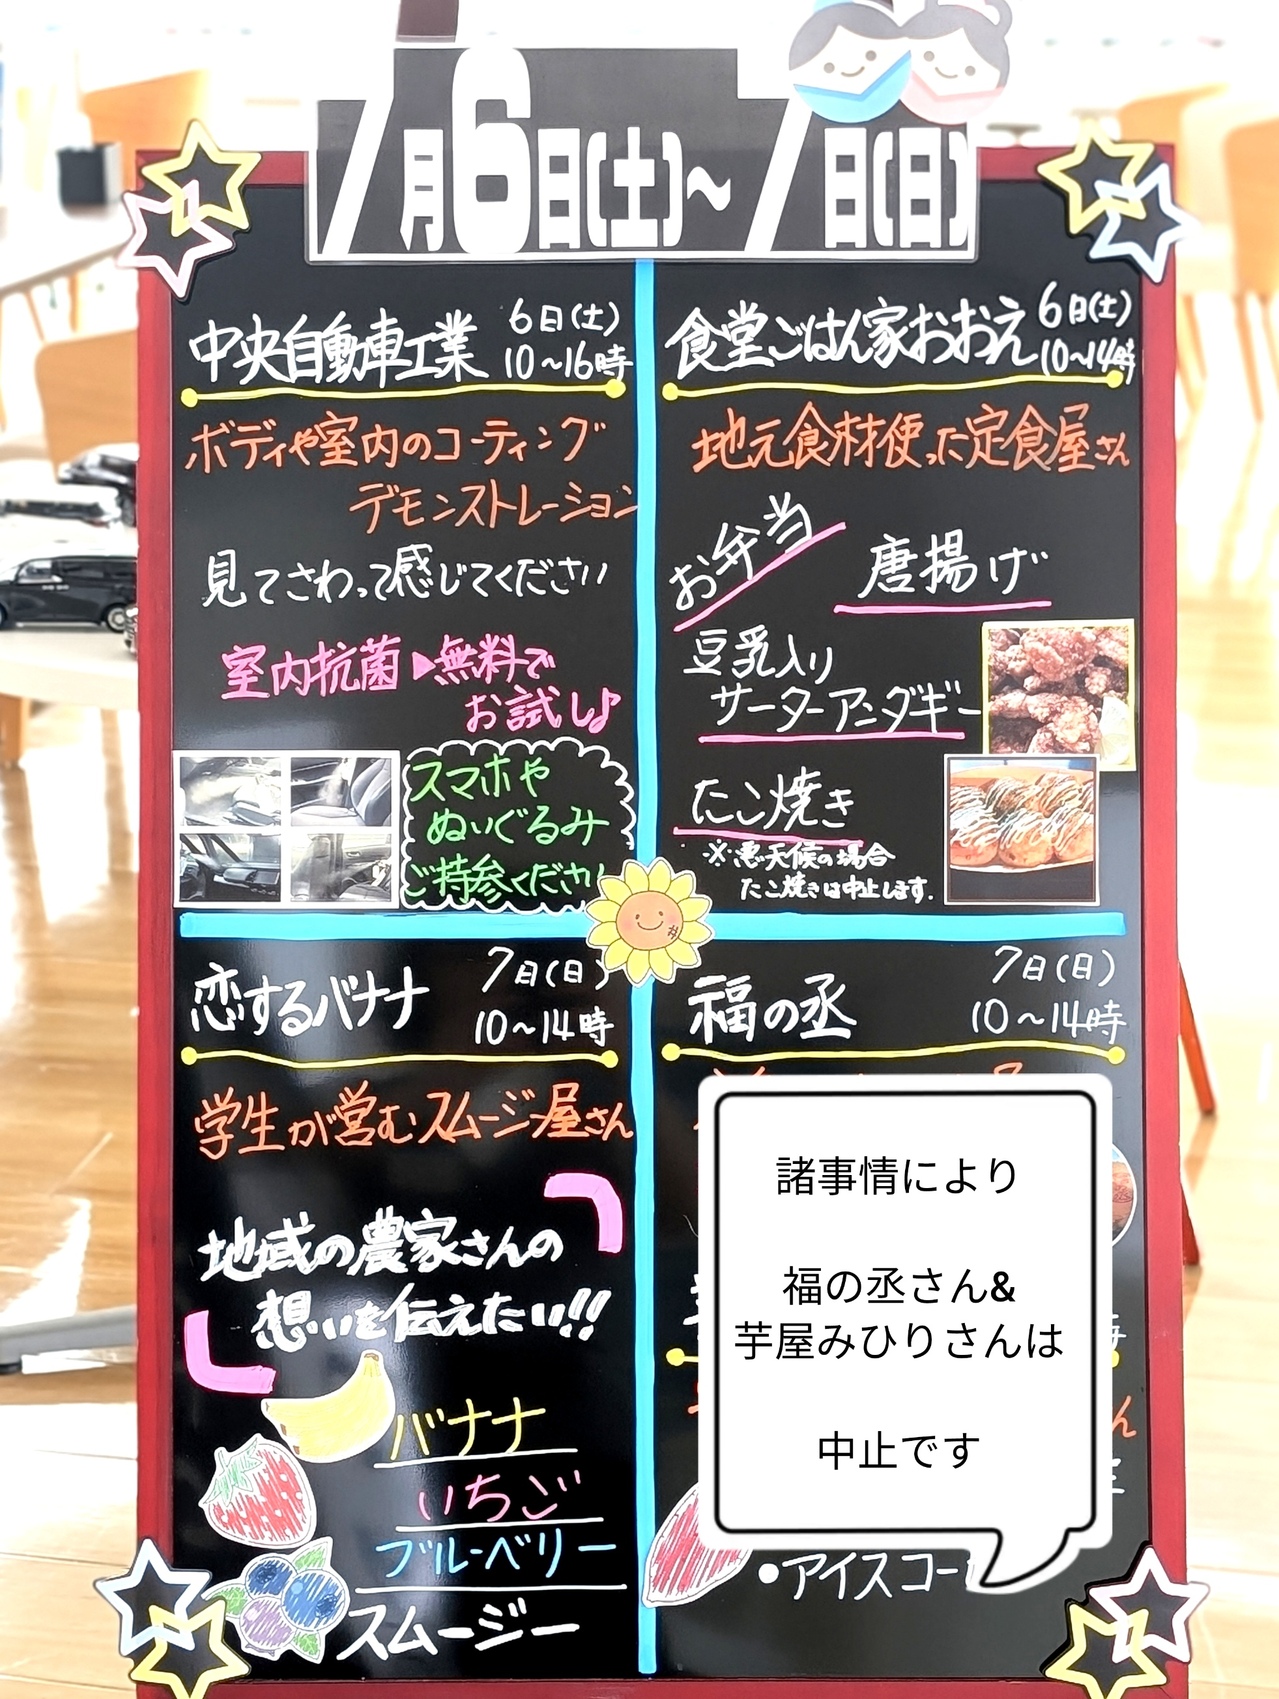 7月6日(土)~7日(日)
中央自動車工業
6日(土)
10~16時
ボディや室内のコーティング
デモンストレーション
見てさわって感じてください
室内抗菌▶無料で
お試し♪
スマホや
ぬいぐるみ
ご持参ください
食堂ごはん家おおえ
6日(土)
10~14時
地元食材使った定食屋さん
お弁当
唐揚げ
豆乳入り
サーターアンダギー
たこ焼き
※悪天候の場合
たこ焼きは中止します.
恋するバナナ
7日(日)
10~14時
学生が営むスムージー屋さん
地域の農家さんの
想いを伝えたい!!
バナナ
いちご
ブルーベリー
スムージー
福の丞
7日(日)
10~14時
諸事情により
福の丞さん&
芋屋みひりさんは
中止です
●アイスコー